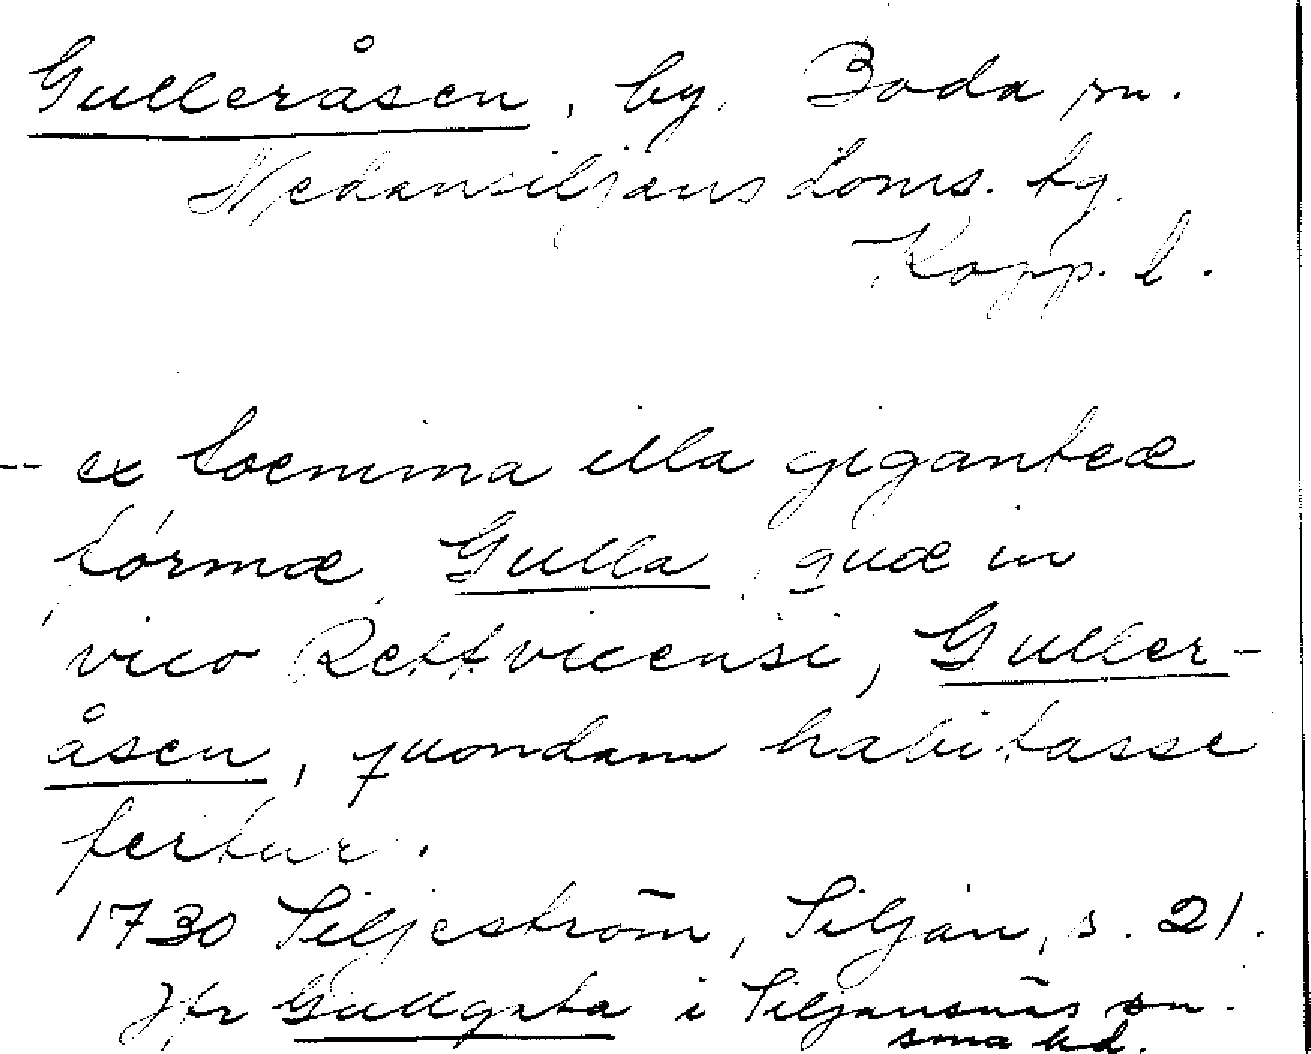 Gulleråsen, by, Boda sn.
Nedansiljans doms. tg.
Kopp. l.
-- ex foemina illa giganteæ
formæ, Gulla, quæ in
vico Rettvicensi, Guller-
åsen, quondam habitasse
fertur.
1730 Siljeström, Siljan, s. 21.
Jfr Gullgrta i Siljansnäs sn.
sma hd.